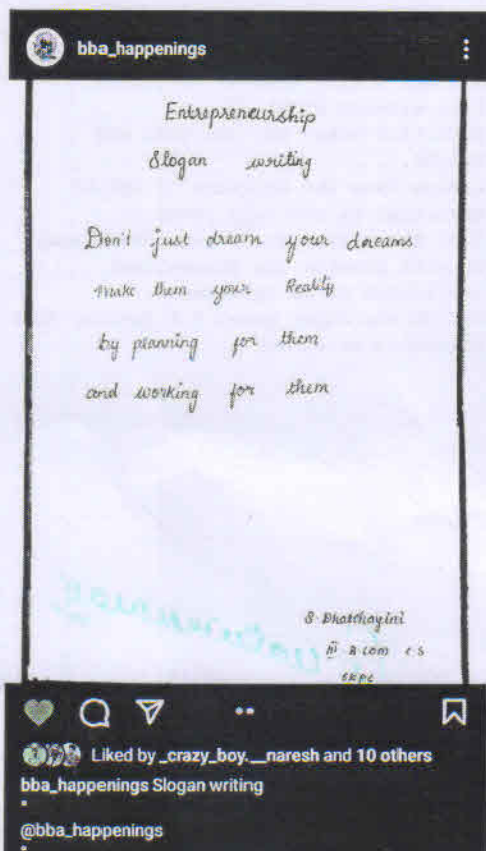 bba_happenings
Entrepreneurship
Slogan writing
Don't just dream your dreams
make them your Reality
by planning for them
and working for them
S. Dhatchayini
III B.com C.S
SKPC
Liked by _crazy_boy.__naresh and 10 others
bba_happenings Slogan writing
@bba_happenings